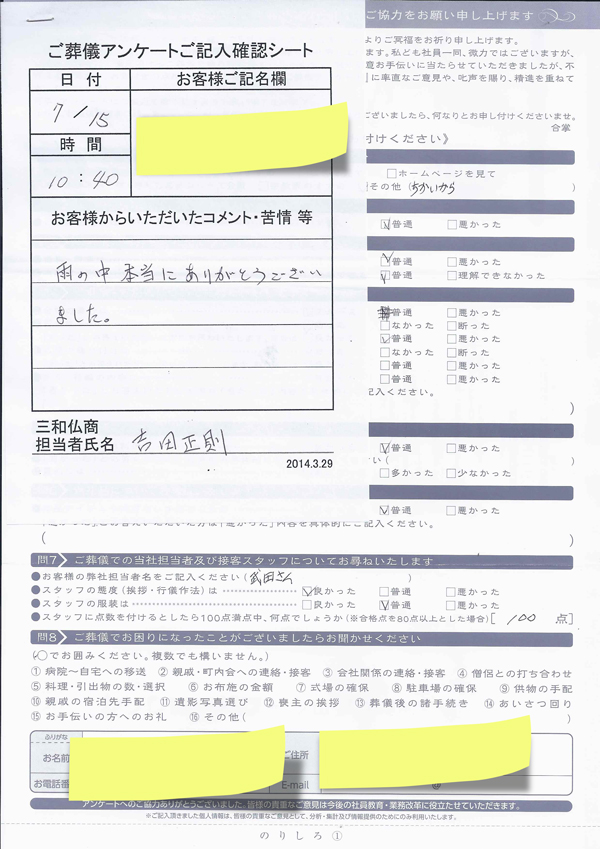 ご葬儀アンケートご記入確認シート
日付
お客様ご記名欄
7/15
時間
10:40
お客様からいただいたコメント・苦情 等
雨の中 本当に ありがとうござい
ました。
三和仏商
担当者氏名 吉田正則
2014.3.29
ご協力をお願い申し上げます
よりご冥福をお祈り申し上げます。
ます。私ども社員一同、微力ではございますが、
意お手伝いに当たらせていただきましたが、不
に率直なご意見や、叱声を賜り、精進を重ねて
ございましたら、何なりとお申し付けくださいませ。
合掌
付けください》
□ホームページを見て
その他 (ちかいから)
普通 □悪かった
普通 □悪かった
普通 □理解できなかった
普通 □悪かった
□なかった □断った
普通 □悪かった
□なかった □断った
□普通 □悪かった
□普通 □悪かった
記入ください。
)
普通 □悪かった
い(
□多かった □少なかった
普通 □悪かった
内容を具体的にご記入ください。
( )
問7 ご葬儀での当社担当者及び接客スタッフについてお尋ねいたします
●お客様の弊社担当者名をご記入ください(武田さん )
●スタッフの態度(挨拶・行儀作法)は ☑良かった □普通 □悪かった
●スタッフの服装は □良かった ☑普通 □悪かった
●スタッフに点数を付けるとしたら100点満点中、何点でしょうか(※合格点を80点以上とした場合)[ 100 点]
問8 ご葬儀でお困りになったことがございましたらお聞かせください
(○でお囲みください。複数でも構いません。)
①病院~自宅への移送 ②親戚・町内会への連絡・接客 ③会社関係の連絡・接客 ④僧侶との打ち合わせ
⑤料理・引出物の数・選択 ⑥お布施の金額 ⑦式場の確保 ⑧駐車場の確保 ⑨供物の手配
⑩親戚の宿泊先手配 ⑪遺影写真選び ⑫喪主の挨拶 ⑬葬儀後の諸手続き ⑭あいさつ回り
⑮お手伝いの方へのお礼 ⑯その他( )
ふりがな
お名前
ご住所
お電話番
E-mail
@
アンケートへのご協力ありがとうございました。皆様の貴重なご意見は今後の社員教育・業務改革に役立たせていただきます。
※ご記入頂きました個人情報は、皆様の貴重なご意見として、分析・集計及び情報提供のためにのみ利用いたします。
のりしろ①